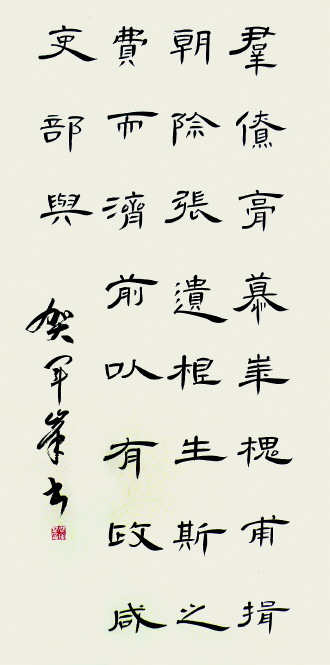 羣僚慕槐甫揖
朝除張遺根生斯之
費而濟前以有政咸
吏部與
贺军峯书